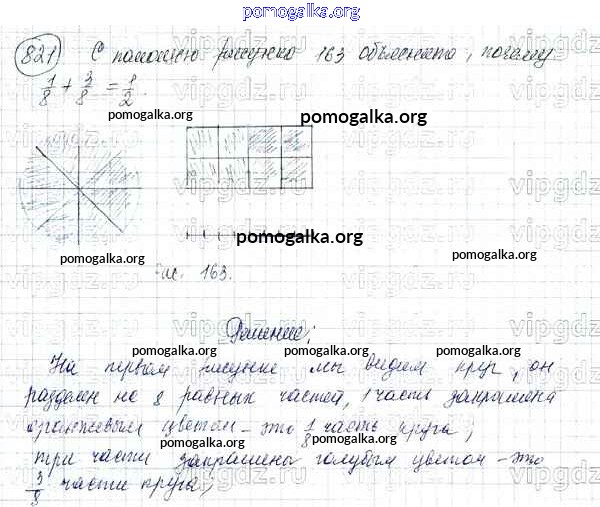 pomogalka.org
821 С помощью рисунка 163 объясните, почему
1/8 + 3/8 = 1/2.
vipgdz.ru
pomogalka.org
pomogalka.org
pomogalka.org
pomogalka.org
pomogalka.org
Рис. 163.
Решение:
pomogalka.org
pomogalka.org
pomogalka.org
На первом рисунке мы видим круг, он
разделен на 8 равных частей, 1 часть закрашена
pomogalka.org
pomogalka.org
оранжевым цветом – это 1/8 часть круга;
pomogalka.org
pomogalka.org
три части закрашены голубым цветом – это
3/8 части круга;
pomogalka.org